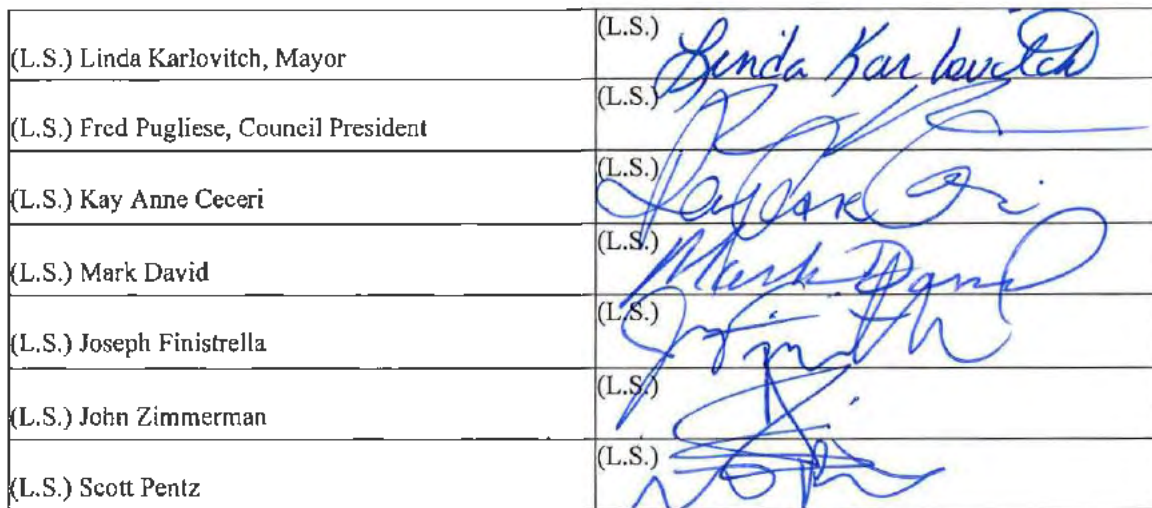 (L.S.) Linda Karlovitch, Mayor
(L.S.) Linda Karlovitch
(L.S.) Fred Pugliese, Council President
(L.S.)
(L.S.) Kay Anne Ceceri
(L.S.)
(L.S.) Mark David
(L.S.) Mark David
(L.S.) Joseph Finistrella
(L.S.)
(L.S.) John Zimmerman
(L.S.)
(L.S.) Scott Pentz
(L.S.)